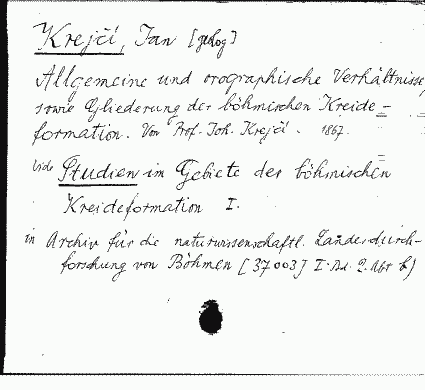 Krejčí, Jan [geolog]
Allgemeine und orographische Verhältnisse,
sowie Gliederung der böhmischen Kreide=
formation. Von Prof. Joh. Krejčí. 1867.
vide Studien im Gebiete der böhmischen
Kreideformation I.
in Archiv für die naturwissenschaftl. Landesdurch-
forschung von Böhmen [37003] I. Bd. 2. Abt b)